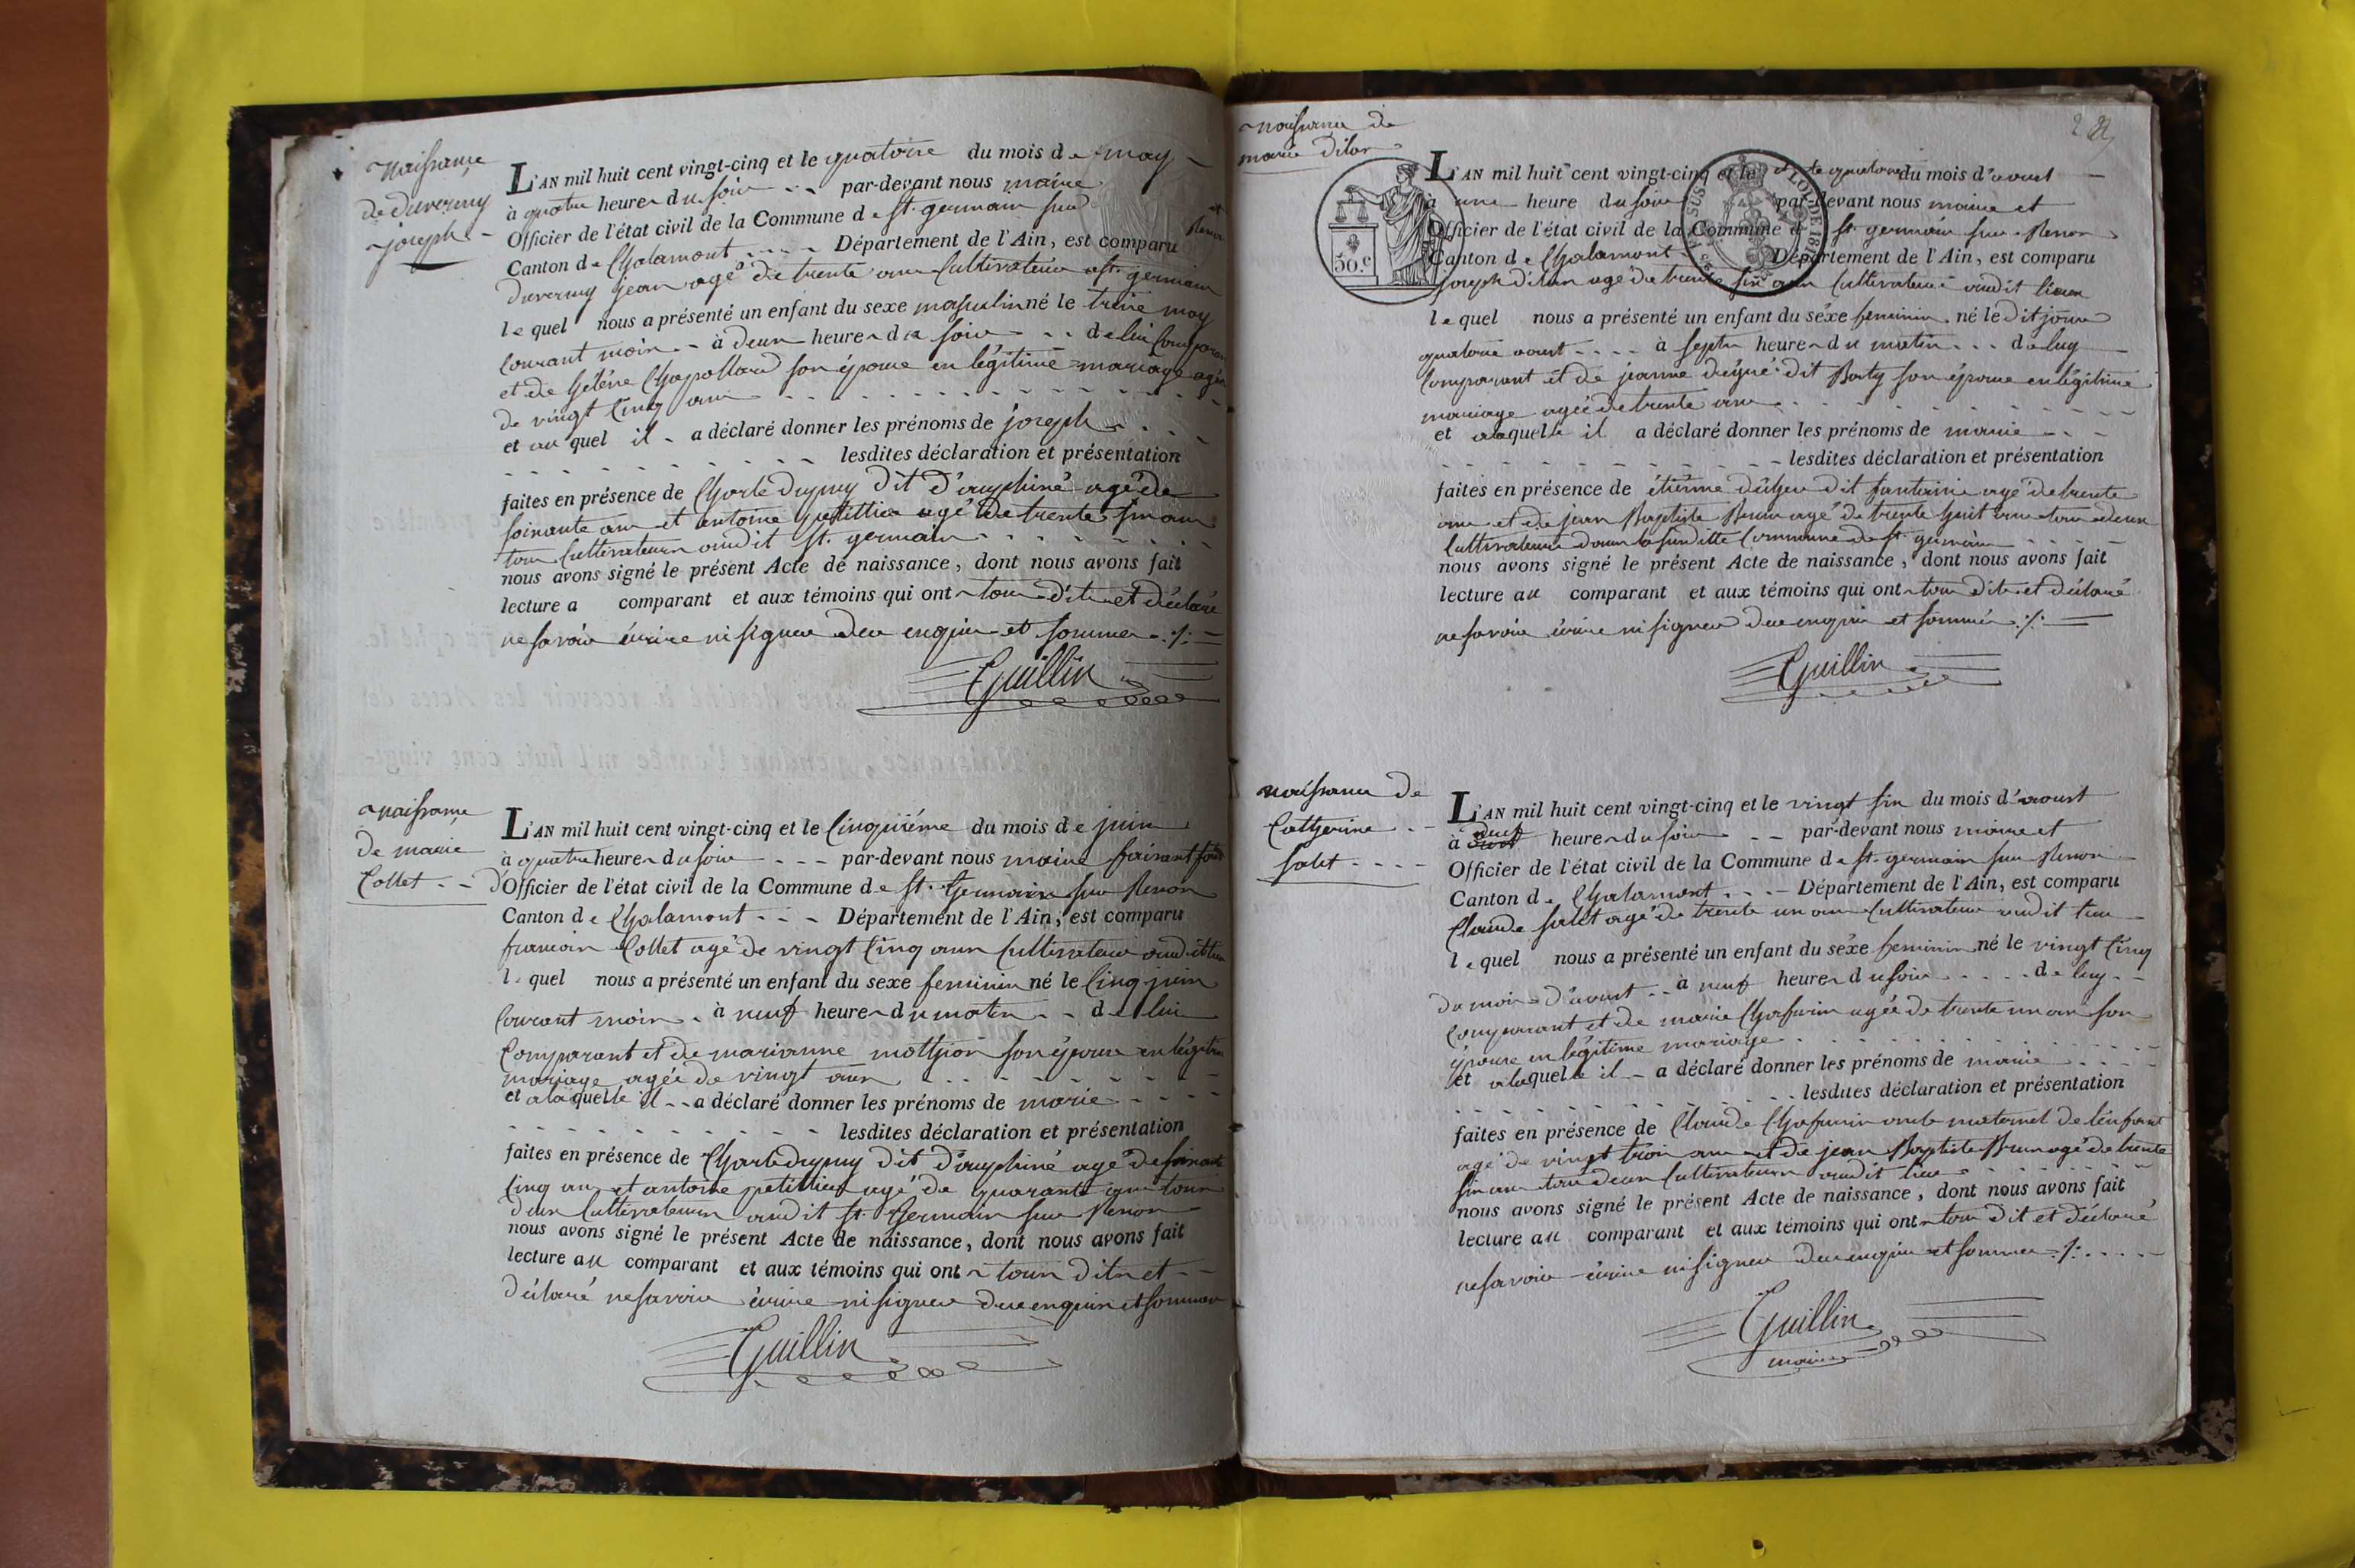 Naissance
de duvernay
joseph
L'AN mil huit cent vingt-cinq et le quatorze du mois de may
à quatre heures du soir par-devant nous maire et
Officier de l'état civil de la Commune de st. germain sur Renon
Canton de Chalamont Département de l'Ain, est comparu
jean agé de trente ans Cultivateur a st. germain
lequel nous a présenté un enfant du sexe masculin né le treize may
Courant mois à deux heures du soir de lui Comparant
et de héléne Chapolard son épouse en légitime mariage agée
de vingt Cinq ans
et au quel il a déclaré donner les prénoms de joseph
lesdites déclaration et présentation
faites en présence de Charle dupuy dit d'auphiné agé de
soixante ans et antoine petittier agé de trente six ans
tous Cultivateurs audit st. germain
nous avons signé le présent Acte de naissance, dont nous avons fait
lecture a comparant et aux témoins qui ont tous dits et déclaré
ne savoir écrire ni signer de ce enquis et sommés ./.
Guillin
Naissance
de marie
Collet
L'AN mil huit cent vingt-cinq et le Cinquiéme du mois de juin
à quatre heures du soir par-devant nous maire faisant fon
d'Officier de l'état civil de la Commune de st. Germain sur Renon
Canton de Chalamont Département de l'Ain, est comparu
francois Collet agé de vingt Cinq ans Cultivateur audit lieu
lequel nous a présenté un enfant du sexe feminin né le Cinq juin
Courant mois à neuf heures du matin de lui
Comparant et de marianne son épouse en légitime
mariage agée de vingt ans
et a laquelle il a déclaré donner les prénoms de marie
lesdites déclaration et présentation
faites en présence de Charle dupuy dit d'auphiné agé de soixante
Cinq ans et antoine petittier agé de quarante ans tous
deux Cultivateurs audit st. Germain sur Renon
nous avons signé le présent Acte de naissance, dont nous avons fait
lecture au comparant et aux témoins qui ont tous dits et
déclaré ne savoir écrire ni signer de ce enquis et sommés
Guillin
22
Naissance de
marie dilas
50.c
LOI DE 181
L'AN mil huit cent vingt-cinq et le quatorze du mois d'aoust
à une heure du soir par-devant nous maire et
Officier de l'état civil de la Commune de st. germain sur Renon
Canton de Chalamont Département de l'Ain, est comparu
joseph agé de trente six ans Cultivateur audit lieux
lequel nous a présenté un enfant du séxe feminin né le dit jour
quatorze aoust à sept heures du matin de luy
Comparant et de jeanne dit Baty son épouse en légitime
mariage agée de trente ans
et a laquelle il a déclaré donner les prénoms de marie
lesdites déclaration et présentation
faites en présence de étiénne dit fontaine agé de trente
ans et de jean Baptiste Brun agé de trente huit ans tous deux
Cultivateurs dans la susditte Commune de st. germain
nous avons signé le présent Acte de naissance, dont nous avons fait
lecture au comparant et aux témoins qui ont tous dits et déclaré
ne savoir écrire ni signer de ce enquis et sommés ./.
Guillin
naissance de
Catherine
salet
L'AN mil huit cent vingt-cinq et le vingt six du mois d'aoust
à neuf heures du soir par-devant nous maire et
Officier de l'état civil de la Commune de st. germain sur Renon
Canton de Chalamont Département de l'Ain, est comparu
Claude salet agé de trente un ans Cultivateur audit lieu
lequel nous a présenté un enfant du séxe feminin né le vingt Cinq
du mois d'aoust à neuf heures du soir de luy
Comparant et de marie agée de trente un an son
épouse en légitime mariage
et a laquelle il a déclaré donner les prénoms de marie
lesdites déclaration et présentation
faites en présence de Claude oncle maternel de l'enfant
agé de vingt trois ans et de jean Baptiste Brun agé de trente
six ans tous deux Cultivateurs audit lieu
nous avons signé le présent Acte de naissance, dont nous avons fait
lecture au comparant et aux témoins qui ont tous dit et déclaré
ne savoir écrire ni signer de ce enquis et sommés ./.
Guillin
maire